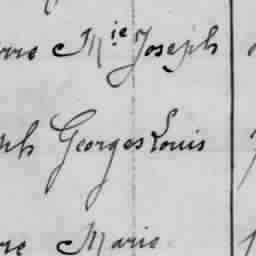 Mie Joseph
Georges Louis
Marie